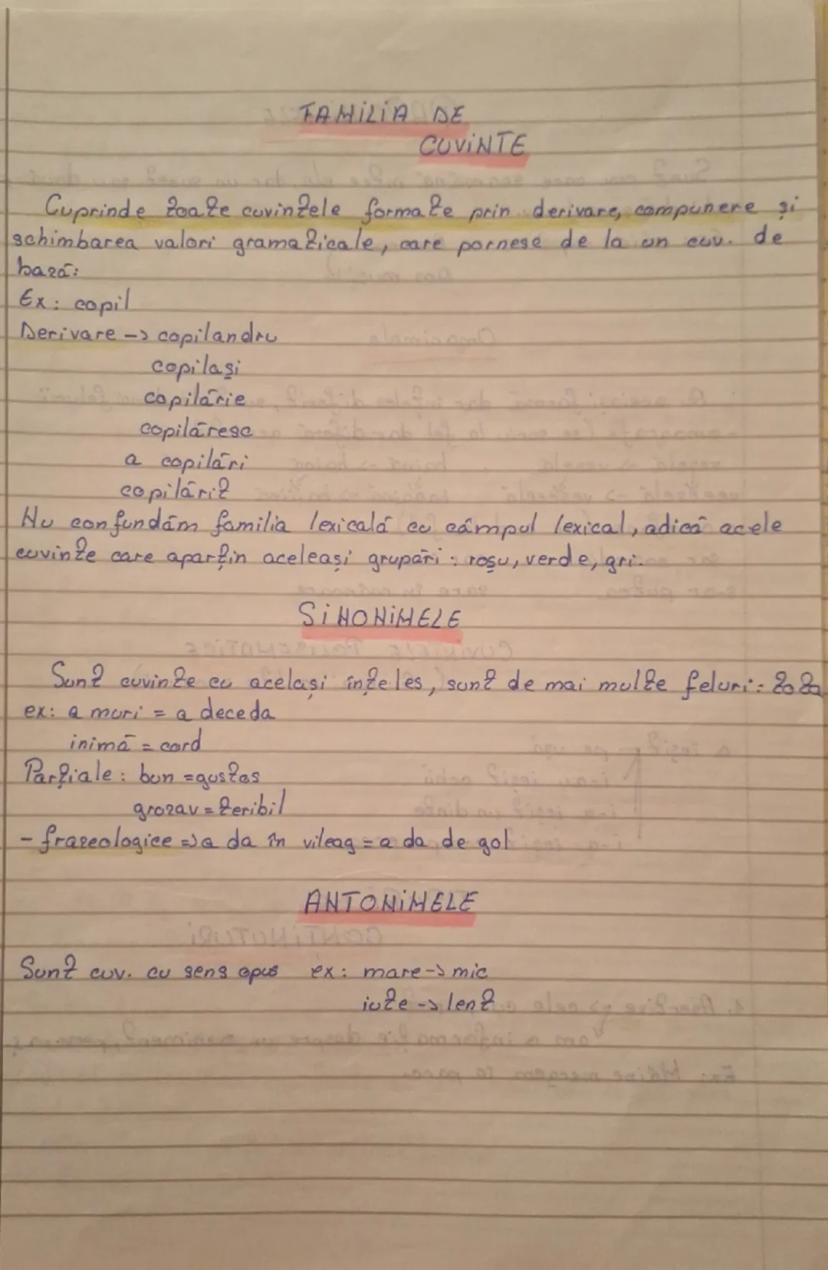 FAMILIA DE
CUVINTE
Cuprinde toate cuvintele formate prin derivare, compunere și
schimbarea valori gramaticale, care pornesc de la un cuv. de
bază:
Ex: copil
Derivare -> copilandru
copilași
copilărie
copilăresc
a copilări
copilărit
Nu confundăm familia lexicală cu câmpul lexical, adică acele
cuvinte care aparțin aceleași grupări: roșu, verde, gri.
SINONIMELE
Sunt cuvinte cu același înțeles, sunt de mai multe feluri:
ex: a muri = a deceda
inimă = cord
Parțiale: bun = gustos
grozav = teribil
- frazeologice => a da în vileag = a da de gol
ANTONIMELE
Sunt cuv. cu sens opus ex: mare -> mic
iute -> lent